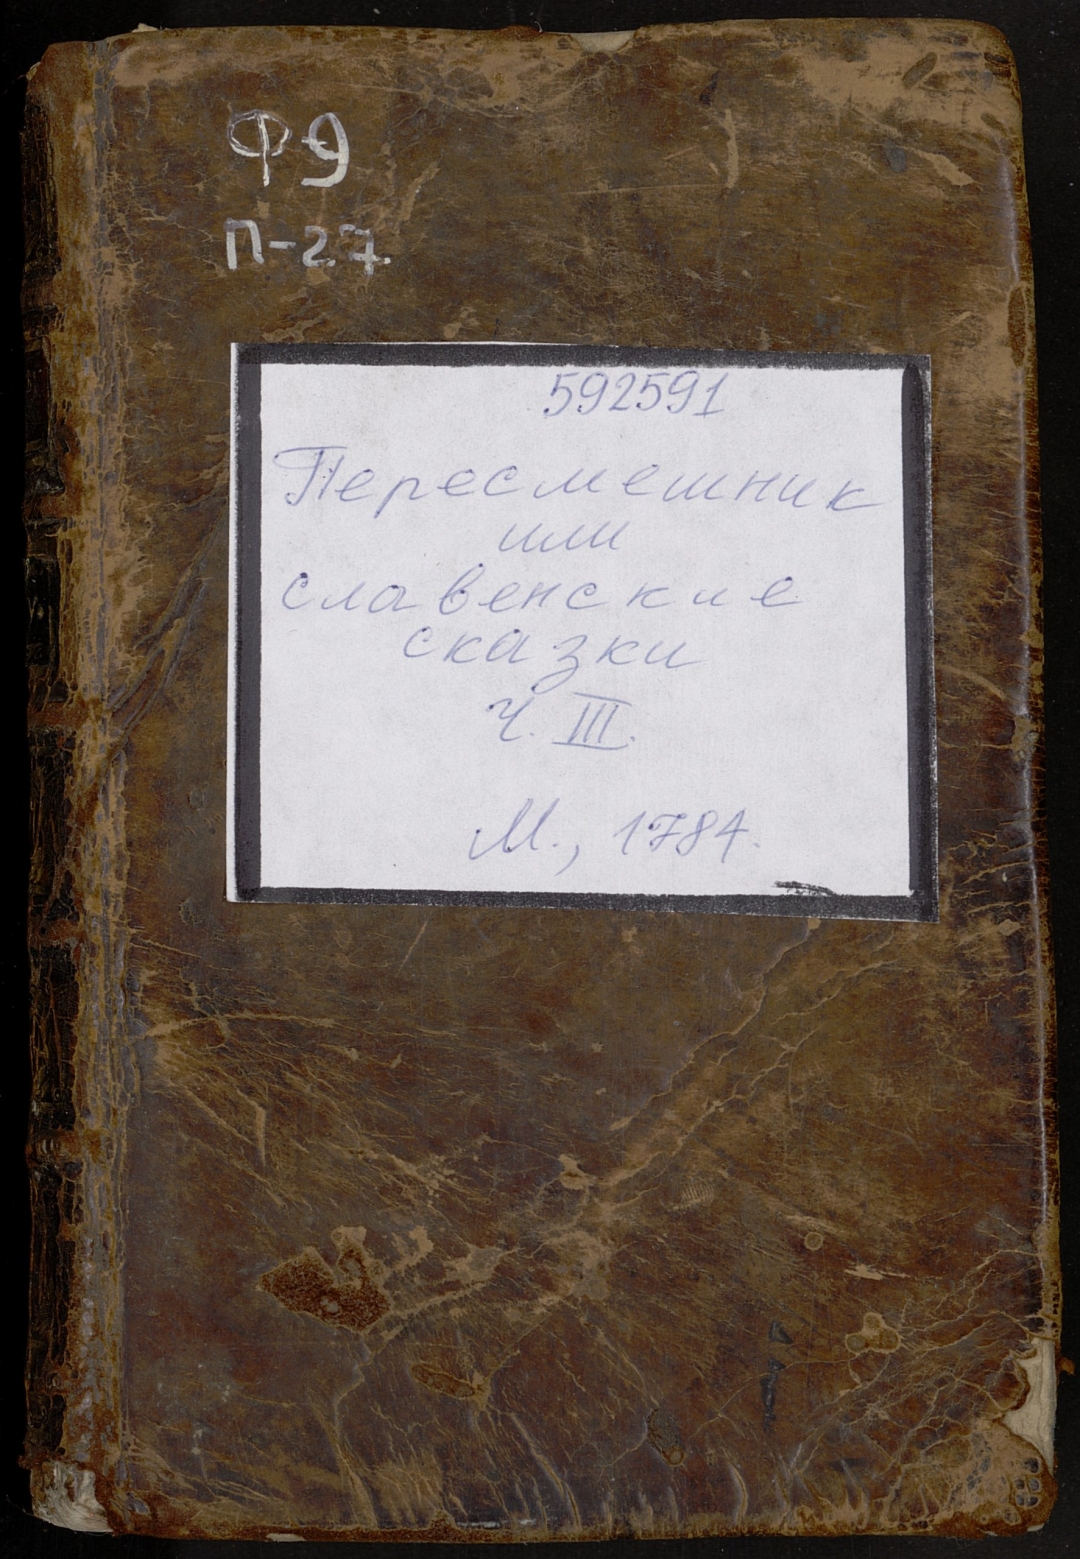 Ф9
П-27
592591
Пересмешник
или
славенские
сказки
Ч. III.
М., 1784.